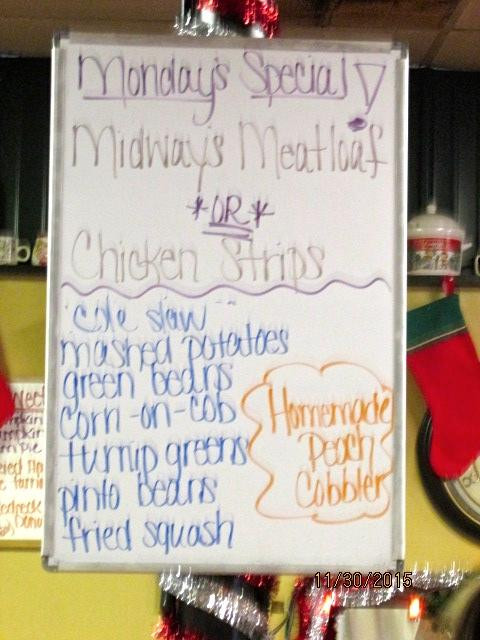 Monday's Special!
Midway's Meatloaf
*OR*
Chicken Strips
cole slaw
mashed potatoes
green beans
corn-on-cob
turnip greens
pinto beans
fried squash
Homemade
Peach
Cobbler
11/30/2015